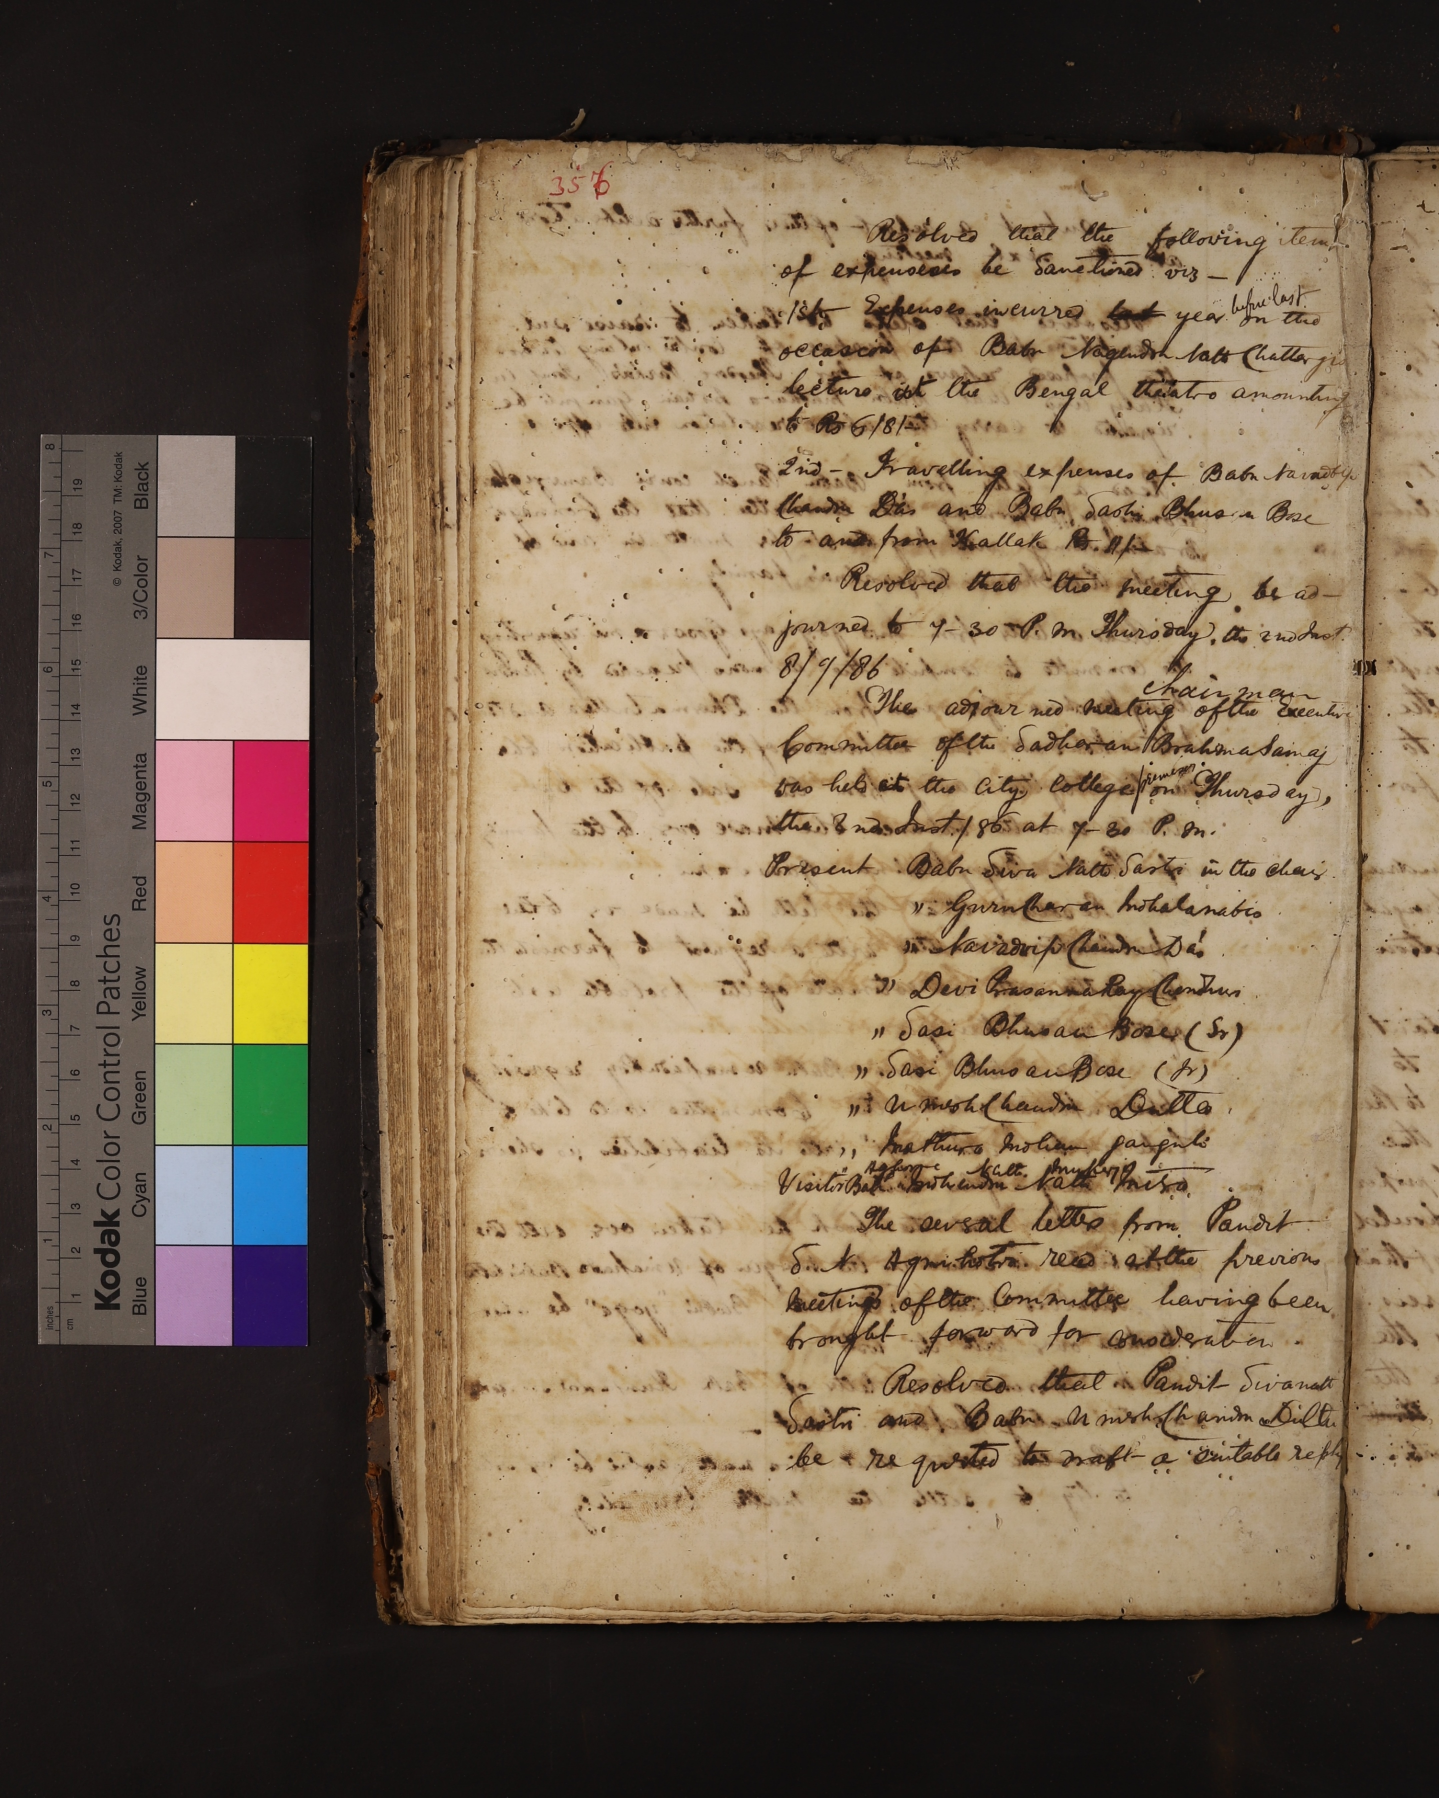 356
Resolved that the following items
of expenseses be Sanctioned viz —
1st— Expenses incurred last year before last on the
occasion of Babu Nagendra Nath Chatterjee
lecture at the Bengal theatre amounting
to Rs 6/8/-
2nd— Travelling expenses of Babu Navadwip
Chandra Dás and Babu Sashi Bhusan Bose
to and from Kallak Rs.
Resolved that the meeting be ad—
journed to 7-30 P. M. Thursday, the 2nd Inst.
8/9/86
Chairman
The adjourned meeting of the Executive
Committee of the Sadharan Brahma Samaj
was held at the City College on Thursday,
the 2nd Inst/86 at 7-30 P. M.
Present Babu Siva Nath Sastri in the chair.
" Guru Charan Mohalanabis
" Navadwip Chandra Dás
" Devi Prasanna Ray Chowdhuri
" Sasi Bhusan Bose (Sr)
" Sasi Bhusan Bose (Jr)
" Umesh Chandra Dutta
" Mathura Mohan Ganguli
Aghore Nath Mukerji
Visitor Babu Mohendra Nath Mitra
The several letters from Pandit
S. N. Agnihotri read at the previous
Meetings of the Committee having been
brought forward for consideration
Resolved that Pandit Sivanath
Sastri and Babu Umesh Chandra Dutta
be requested to draft a suitable reply
Kodak Color Control Patches
© Kodak, 2007 TM: Kodak
Blue Cyan Green Yellow Red Magenta White 3/Color Black
inches 1 2 3 4 5 6 7 8
cm 1 2 3 4 5 6 7 8 9 10 11 12 13 14 15 16 17 18 19